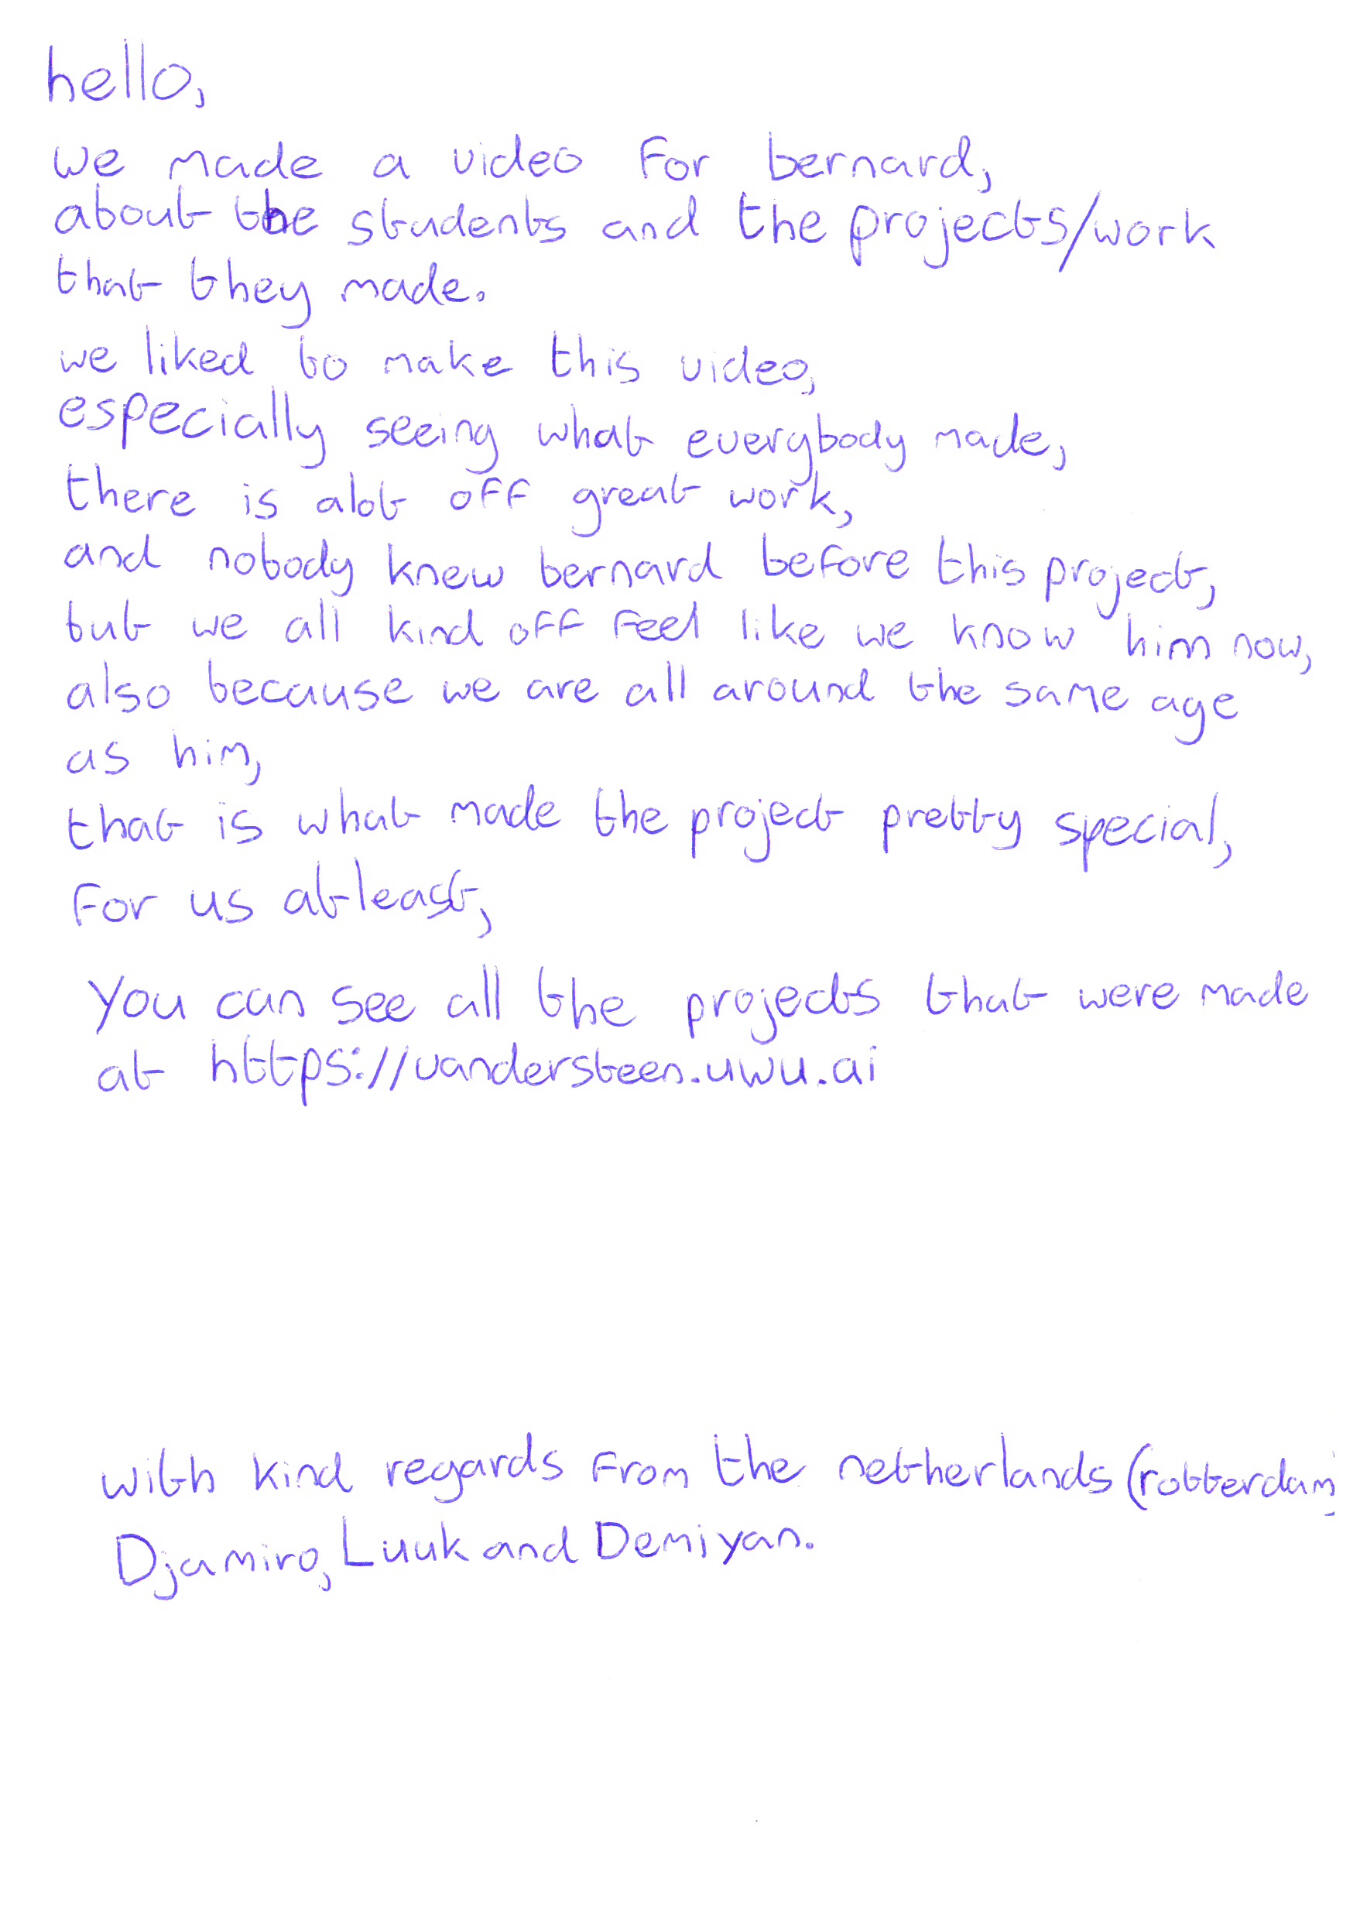 hello,
we made a video for bernard,
about the students and the projects/work
that they made.
we liked to make this video,
especially seeing what everybody made,
there is alot off great work,
and nobody knew bernard before this project,
but we all kind off feel like we know him now,
also because we are all around the same age
as him,
that is what made the project pretty special,
for us atleast,
You can see all the projects that were made
at https://vandersteen.uwu.ai
with kind regards from the netherlands (rotterdam)
Djamiro, Luuk and Demiyan.